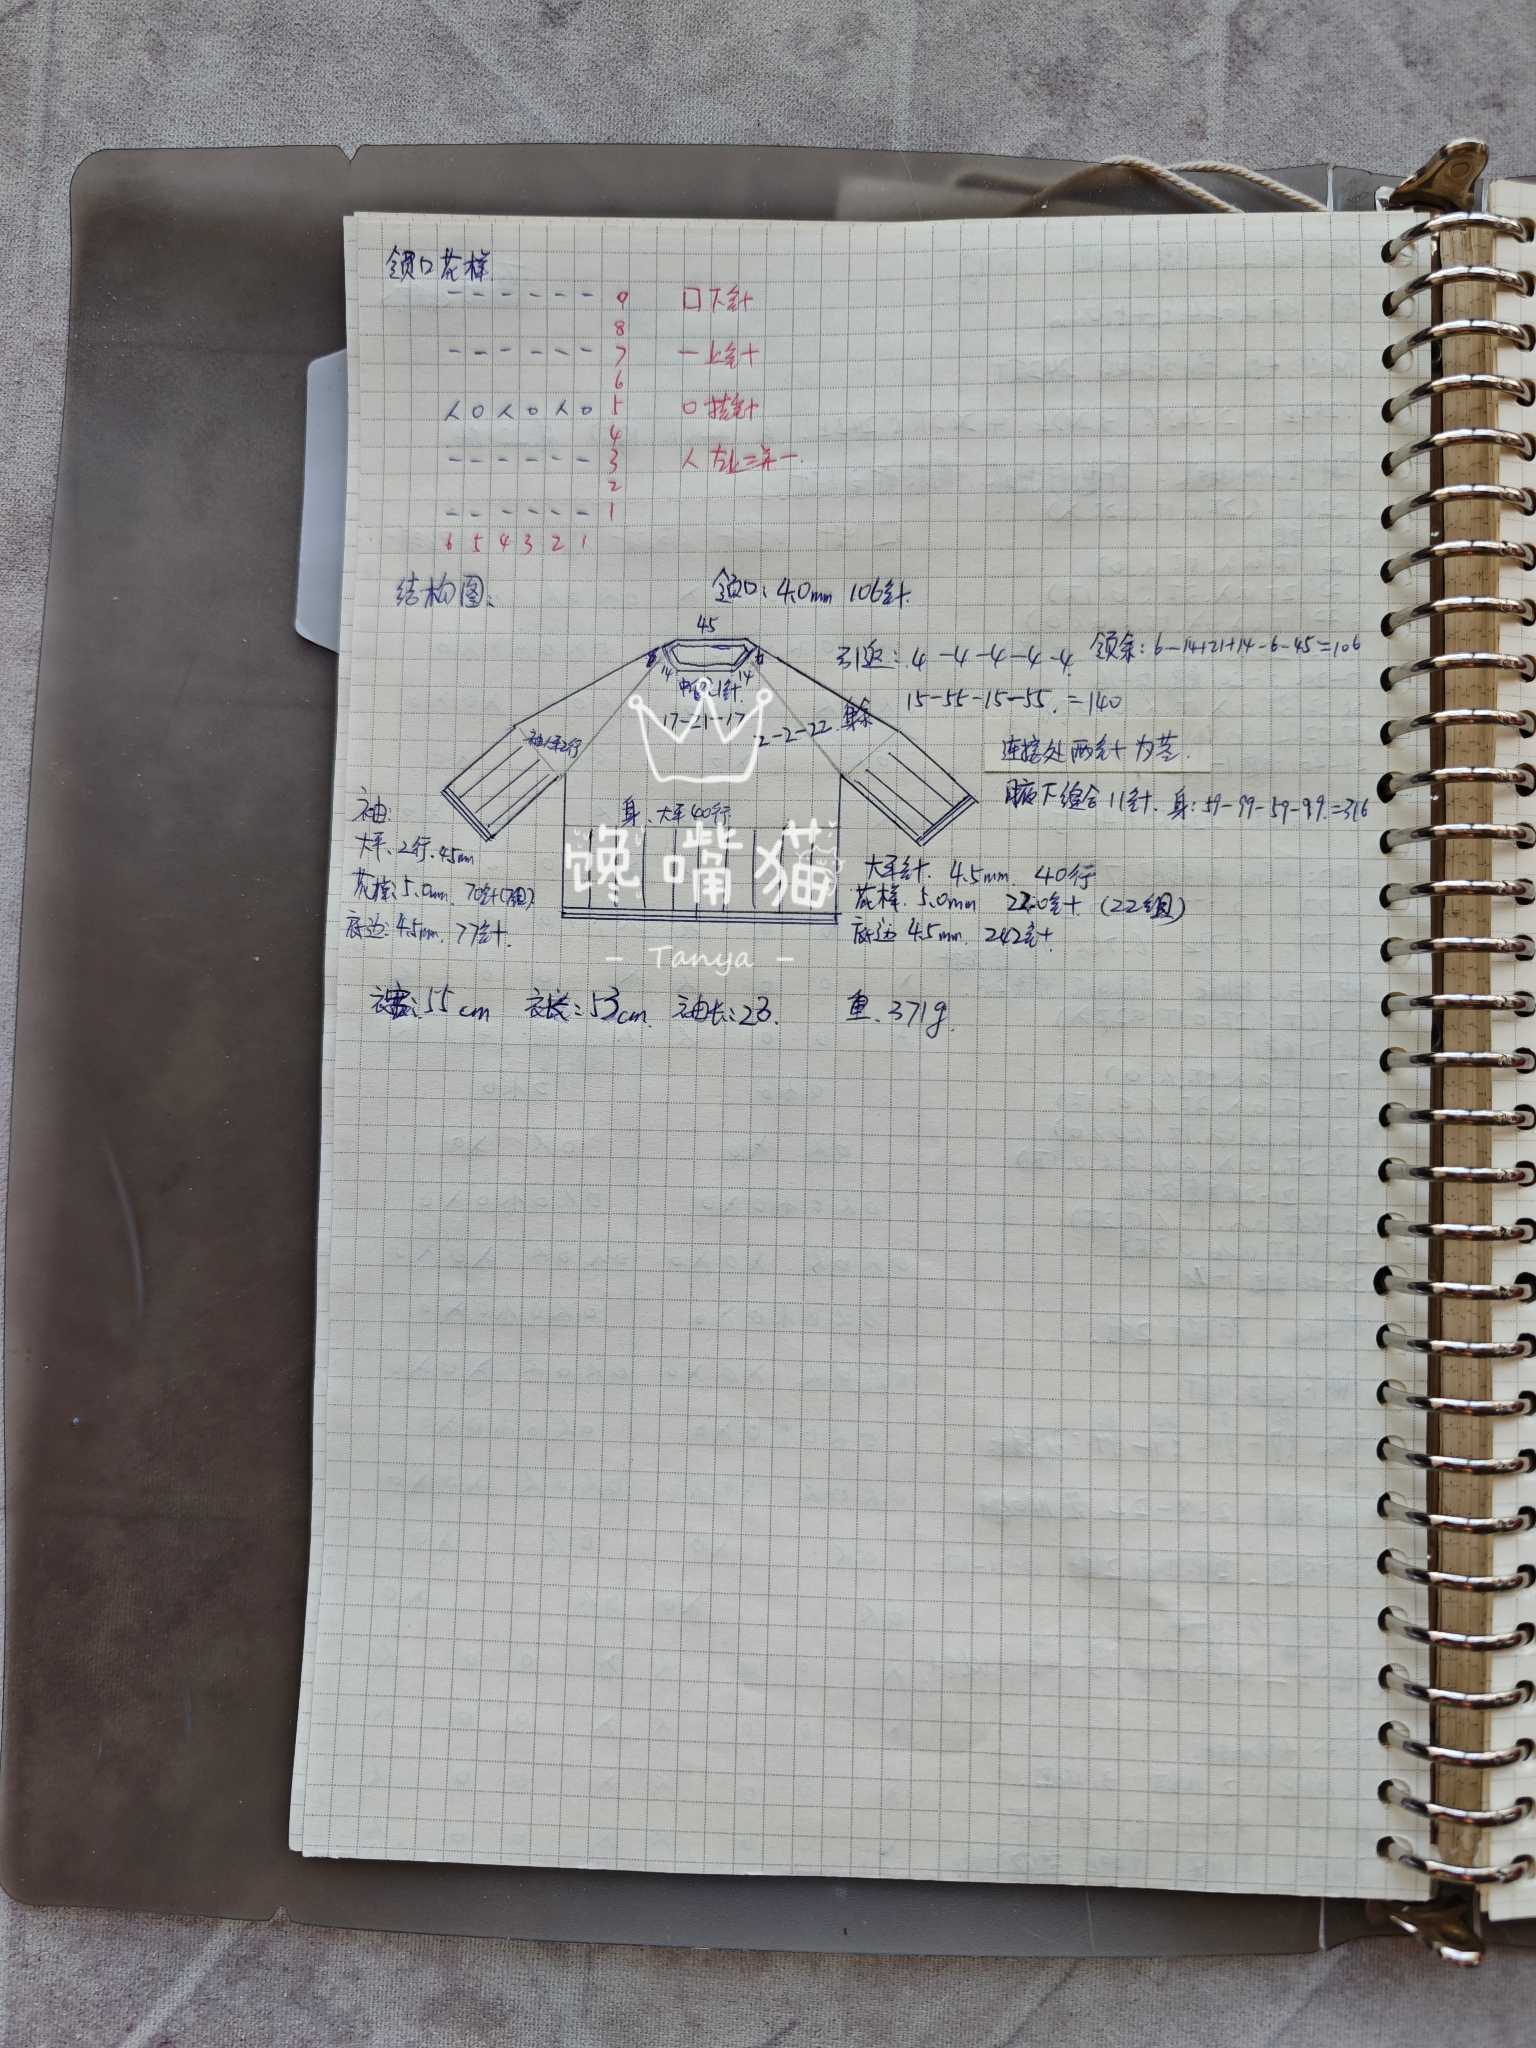 领口花样
- - - - - - 9 口下针
8
- - - - - - 7 一上针
6
人O人O人O 5 O挂针
4
- - - - - - 3 人左上二并一.
2
- - - - - - 1
6 5 4 3 2 1
结构图:
领口:4.0mm 106针.
45
引返:4-4-4-4-4. 领余:6-14+21+14-6-45=106
6 6
14 14
17-21-17
15-55-15-55.=140
2-2-22.
连接处两针为茎.
腋下缝合11针. 身:59-99-59-99.=316
袖:
大平、2行、4.5mm
花样:5.0mm. 70针(7组)
底边:4.5mm. 77针.
身、大平40行
大平针. 4.5mm 40行
花样. 5.0mm 220针. (22组)
底边 4.5mm. 242针.
馋嘴猫
- Tanya -
55cm 衣长:53cm. 袖长:23. 重、371g.